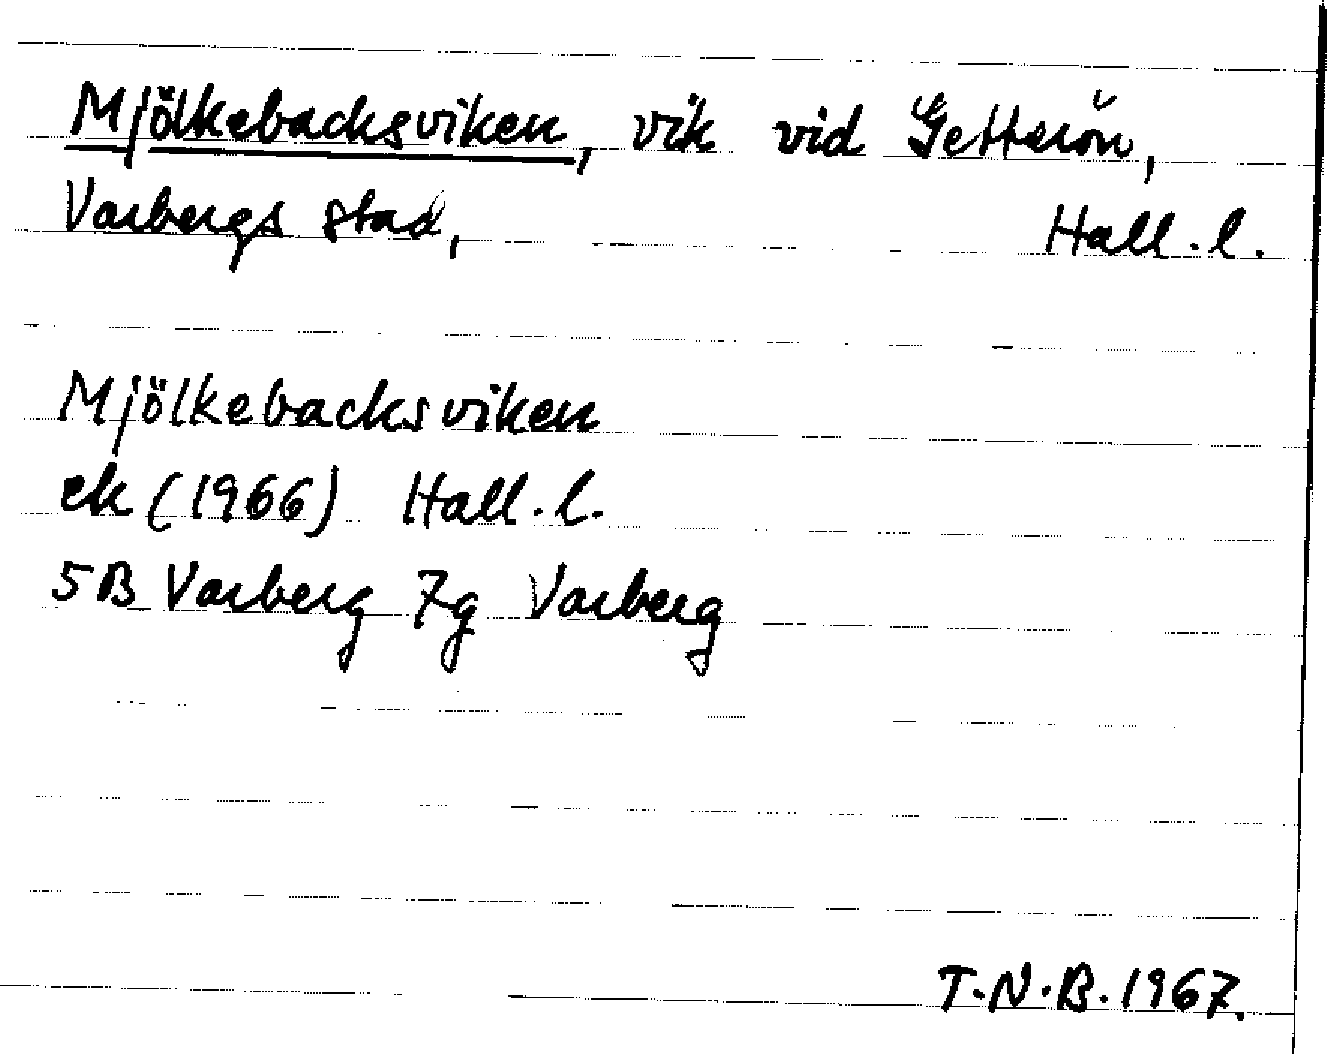 Mjölkebacksviken, vik vid Getterön,
Varbergs stad, Hall. l.
Mjölkebacksviken
ek (1966) Hall. l.
5B Varberg 7g Varberg
T.N.B. 1967.